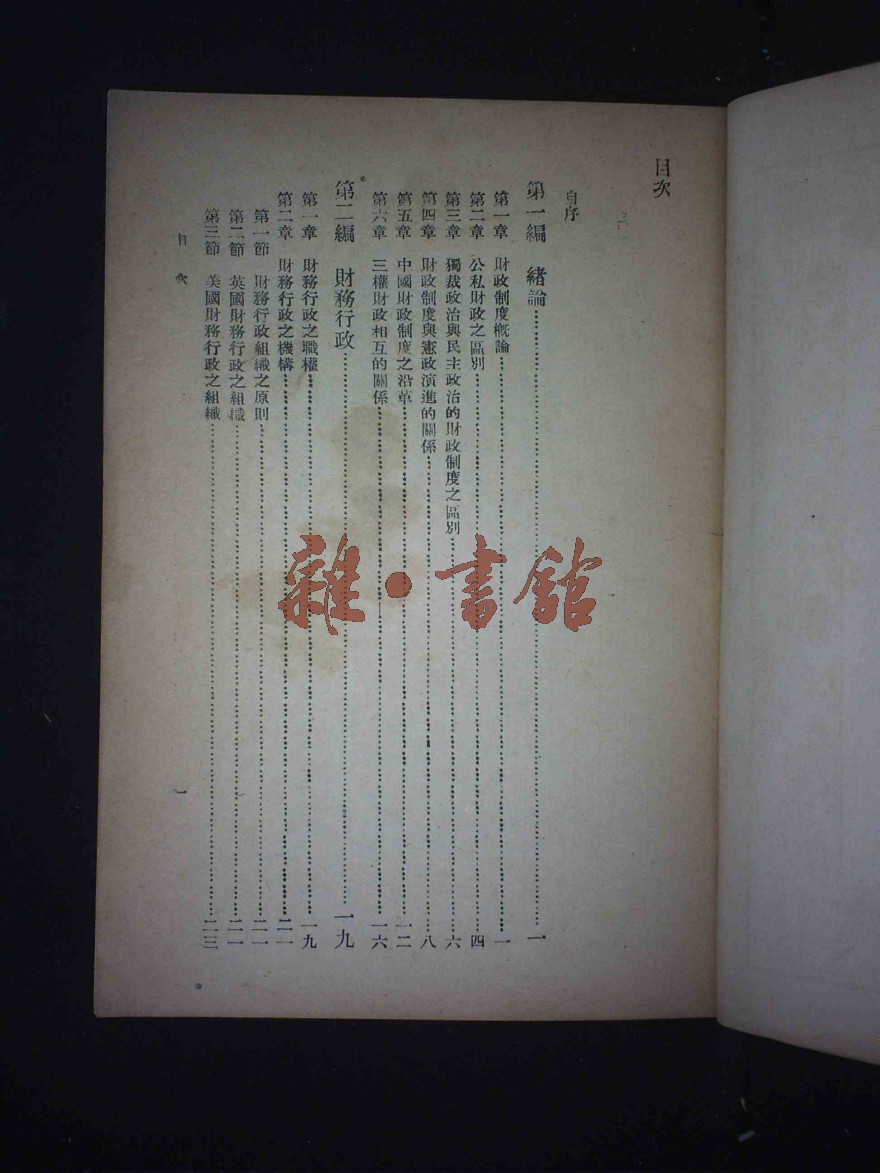 目次
自序
第一編 緒論……一
第一章 財政制度概論……一
第二章 公私財政之區別……四
第三章 獨裁政治與民主政治的財政制度之區別……六
第四章 財政制度與憲政演進的關係……八
第五章 中國財政制度之沿革……一二
第六章 三權財政相互的關係……一六
第二編 財務行政……一九
第一章 財務行政之職權……一九
第二章 財務行政之機構……二一
第一節 財務行政組織之原則……二一
第二節 英國財務行政之組織……二一
第三節 美國財務行政之組織……二三
目次
一
雜·書館